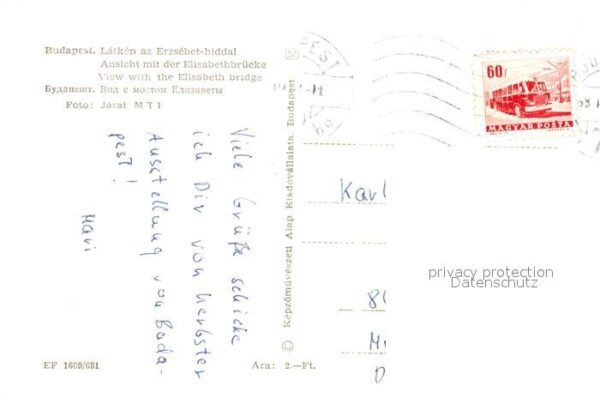 Budapest. Látkép az Erzsébet-híddal
Ansicht mit der Elisabethbrücke
View with the Elisabeth bridge
Будапешт. Вид с мостом Елизаветы
Foto: Jarai MTI
Viele Grüße schicke
ich Dir von Herbster
Ausstellung von Buda-
pest!
Mari
EF 1609/681
Ara: 2.—Ft.
© Képzőművészeti Alap Kiadóvállalata, Budapest
PEST
60f
MAGYAR POSTA
Karl
privacy protection
Datenschutz
8
M
D